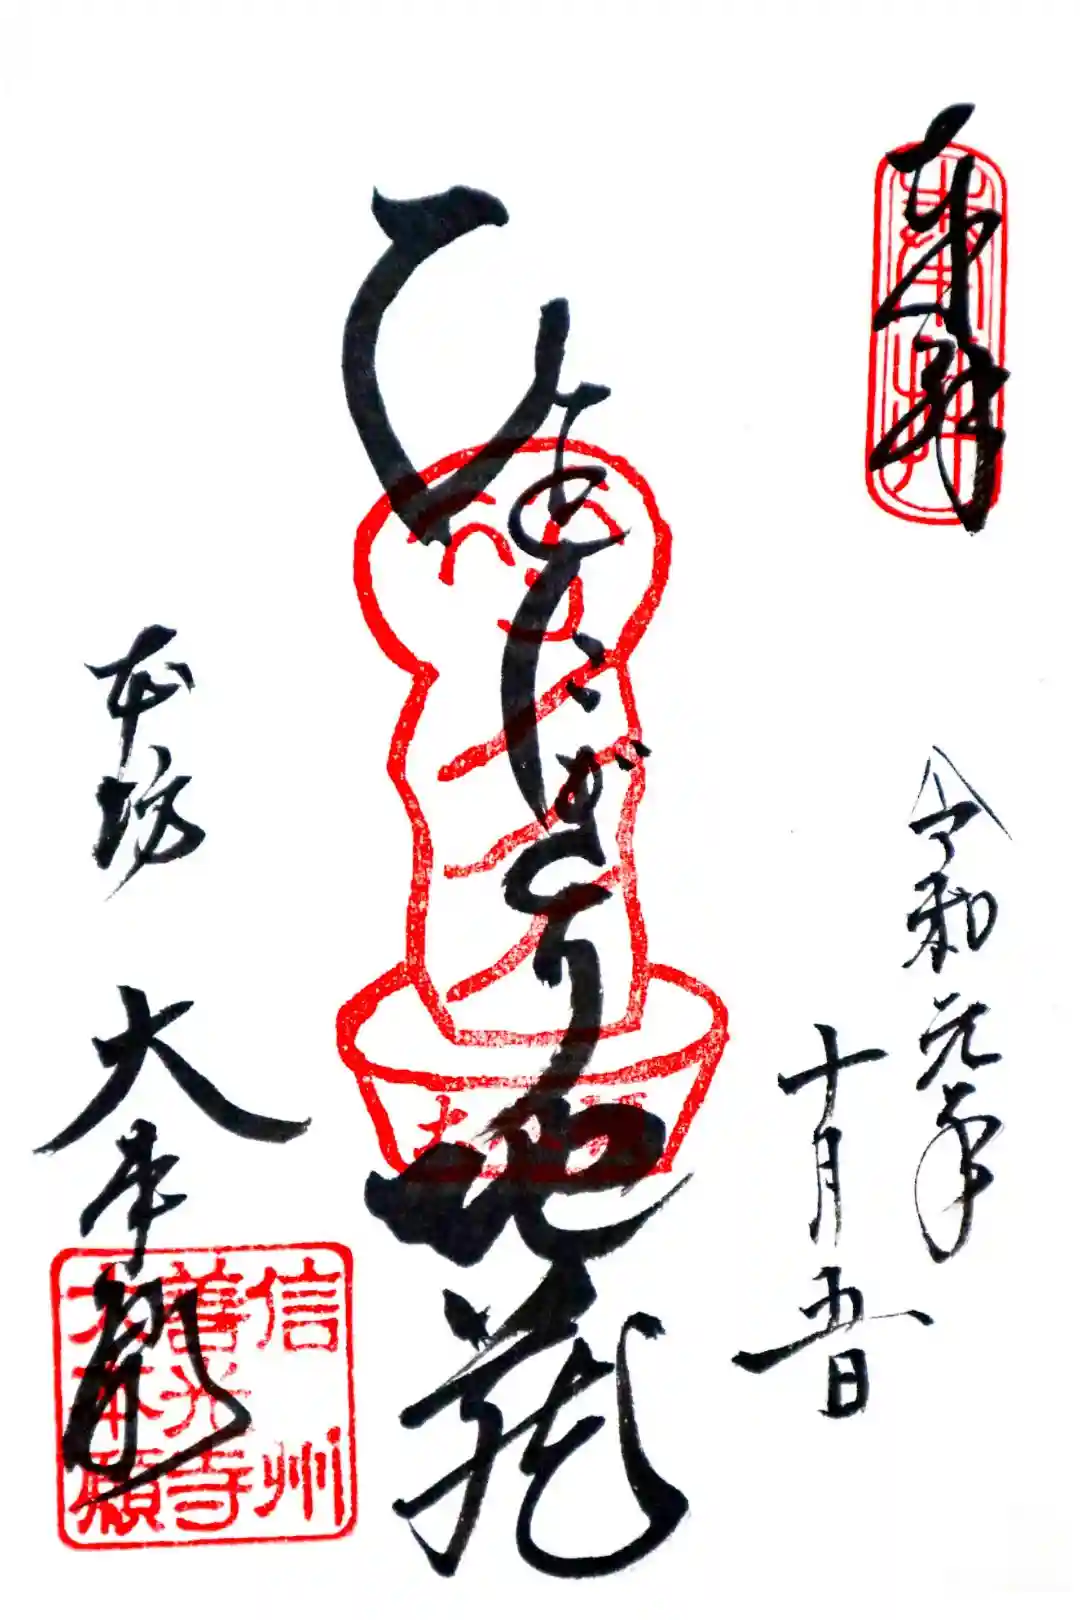 奉拝
令和元年
十月五日
ひとにぎり地蔵
本坊 大本願
信州
善光寺
大本願